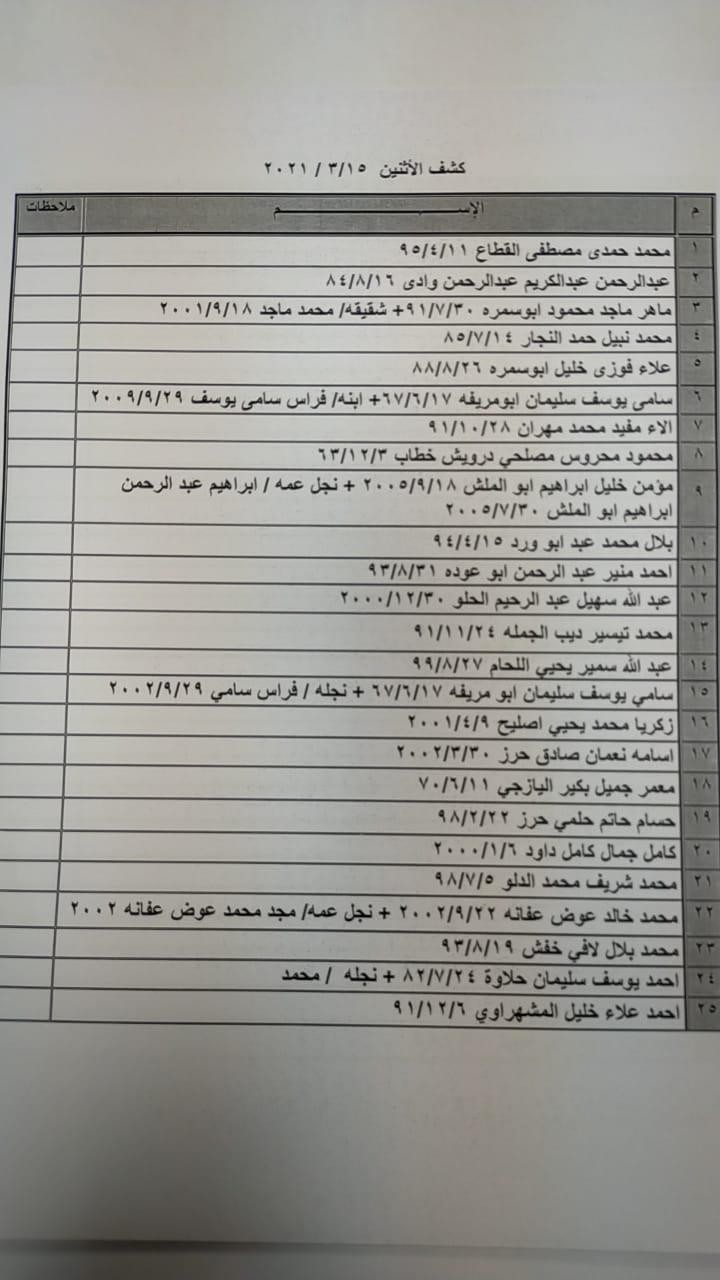 كشف الأثنين ٣/١٥ / ٢٠٢١
م الإســـــم ملاحظات
١ محمد حمدى مصطفى القطاع ٩٥/٤/١١
٢ عبدالرحمن عبدالكريم عبدالرحمن وادى ٨٤/٨/١٦
٣ ماهر ماجد محمود ابوسمره ٩١/٧/٣٠+ شقيقه/ محمد ماجد ٢٠٠١/٩/١٨
٤ محمد نبيل حمد النجار ٨٥/٧/١٤
٥ علاء فوزى خليل ابوسمره ٨٨/٨/٢٦
٦ سامى يوسف سليمان ابومريفه ٦٧/٦/١٧+ ابنه/ فراس سامى يوسف ٢٠٠٩/٩/٢٩
٧ الاء مفيد محمد مهران ٩١/١٠/٢٨
٨ محمود محروس مصلحي درويش خطاب ٦٣/١٢/٣
٩ مؤمن خليل ابراهيم ابو الملش ٢٠٠٥/٩/١٨ + نجل عمه / ابراهيم عبد الرحمن
ابراهيم ابو الملش ٢٠٠٥/٧/٣٠
١٠ بلال محمد عبد ابو ورد ٩٤/٤/١٥
١١ احمد منير عبد الرحمن ابو عوده ٩٣/٨/٣١
١٢ عبد الله سهيل عبد الرحيم الحلو ٢٠٠٠/١٢/٣٠
١٣ محمد تيسير ديب الجمله ٩١/١١/٢٤
١٤ عبد الله سمير يحيي اللحام ٩٩/٨/٢٧
١٥ سامي يوسف سليمان ابو مريفه ٦٧/٦/١٧ + نجله / فراس سامي ٢٠٠٢/٩/٢٩
١٦ زكريا محمد يحيي اصليح ٢٠٠١/٤/٩
١٧ اسامه نعمان صادق حرز ٢٠٠٢/٣/٣٠
١٨ معمر جميل بكير اليازجي ٧٠/٦/١١
١٩ حسام حاتم حلمي حرز ٩٨/٢/٢٢
٢٠ كامل جمال كامل داود ٢٠٠٠/١/٦
٢١ محمد شريف محمد الدلو ٩٨/٧/٥
٢٢ محمد خالد عوض عفانه ٢٠٠٢/٩/٢٢ + نجل عمه/ مجد محمد عوض عفانه ٢٠٠٢
٢٣ محمد بلال لافي خفش ٩٣/٨/١٩
٢٤ احمد يوسف سليمان حلاوة ٨٢/٧/٢٤ + نجله / محمد
٢٥ احمد علاء خليل المشهراوي ٩١/١٢/٦